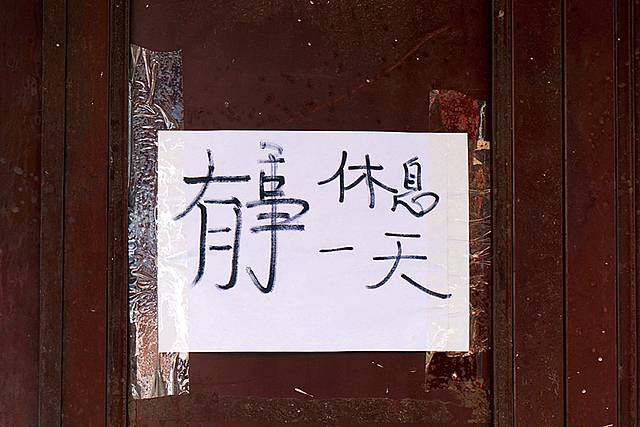 有事 休息
一天